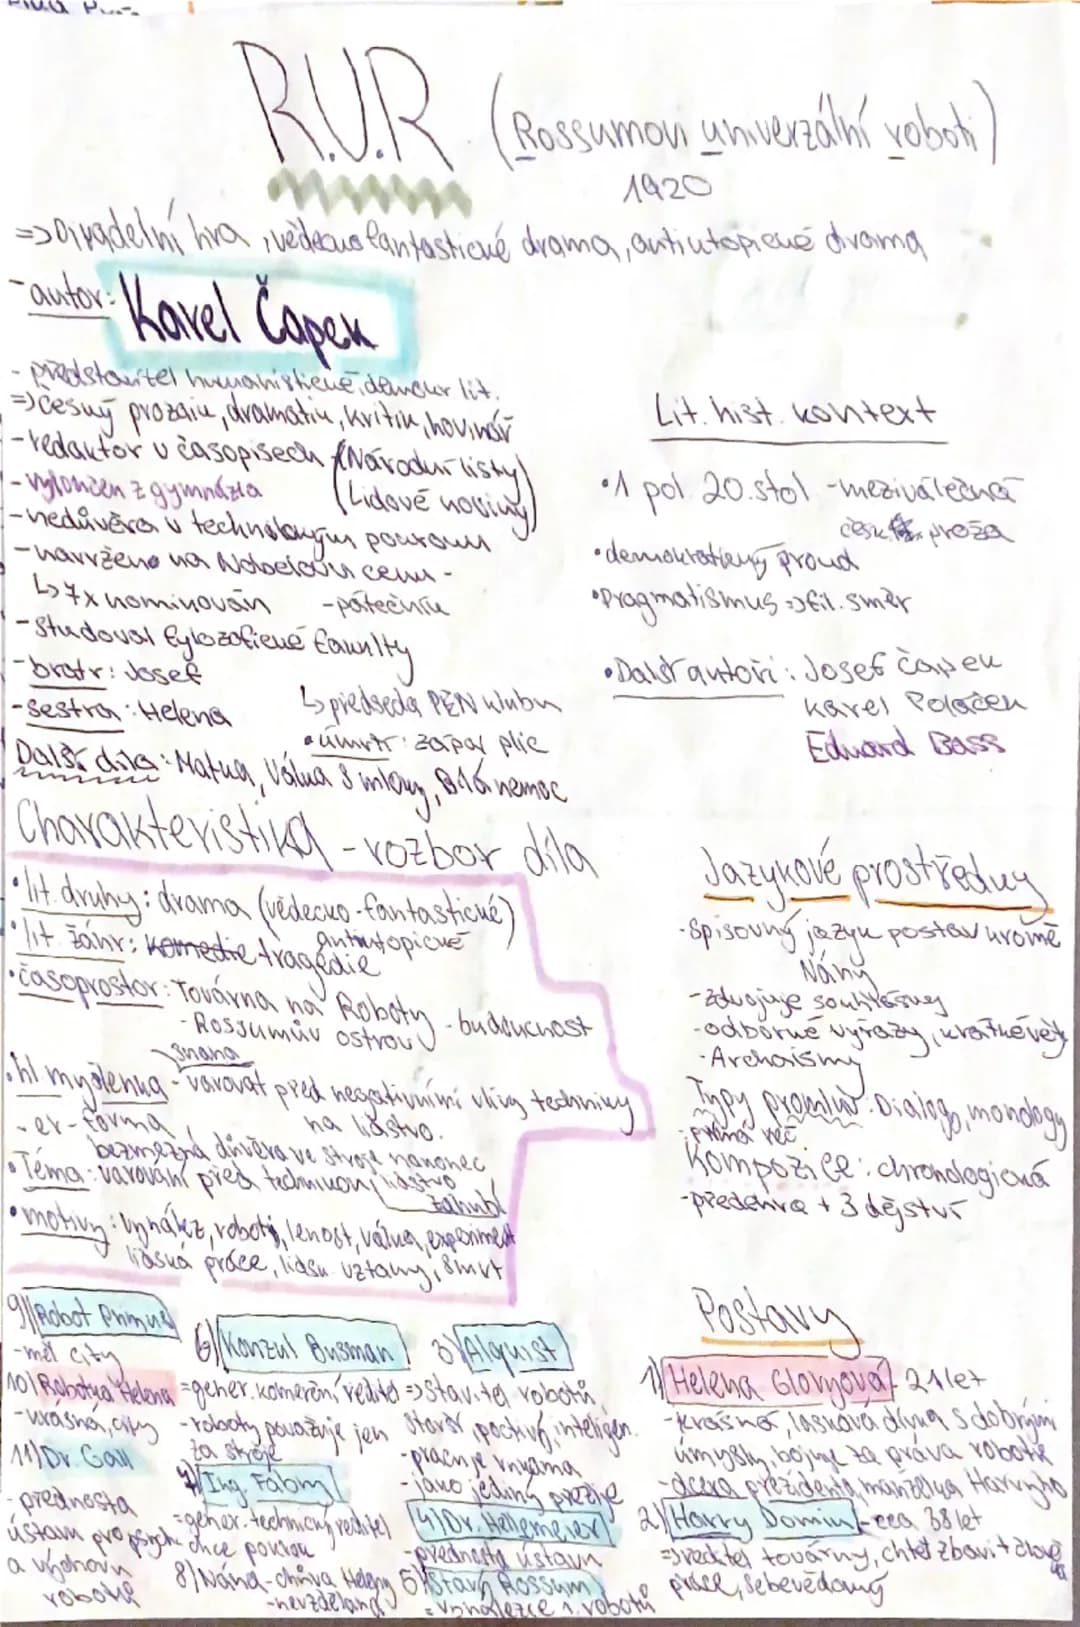 R.U.R. (Rossumovi univerzální roboti)
1920
=> Divadelní hra, vědecko fantastické drama, antiutopické drama
- autor: Karel Čapek
- představitel humanistické, demokr lit.
=> český prozaik, dramatik, kritik, novinář
- redaktor v časopisech (Národní listy)
(Lidové noviny)
- vyloučen z gymnázia
- nedůvěra v technologým pokrokum
- navrženo na Nobelovu cenu -
↳ 7x nominován - pátečník
- Studoval fylozofické fakulty
- bratr: Josef
↳ předseda PEN klubu
- sestra: Helena
• úmrtí: zápal plic
Další díla: Matka, Válka s mloky, Bílá nemoc
Lit. hist. kontext
• 1 pol. 20. stol - meziválečná
česk. próza
• demokratický proud
• Pragmatismus => fil. směr
• Další autoři: Josef Čapek
Karel Poláček
Eduard Bass
Charakteristika - rozbor díla
• lit. druhy: drama (vědecko-fantastické)
antiutopické
• lit. žánr: komedie tragédie
• časoprostor: Továrna na Roboty - budoucnost
- Rossumův ostrov
• hl myšlenka - varovat před negativními vlivy techniky
na lidstvo.
- er-forma
bezmezná důvěra ve stroje nakonec
• Téma: varování před technikou, lidstvo
zahubí
• motivy: vynález, roboti, lenost, válka, experiment
lidská práce, lidsk. vztahy, smrt
Jazykové prostředky
- Spisovný jazyk postav kromě
Nány
- zdvojuje souhlásky
- odborné výrazy, krátké věty
- Archaismy
Typy promluv: Dialog, monology
- přímá řeč
Kompozice: chronologická
- předehra + 3 dějství
Postavy
1) Helena Gloryová 21 let
- krásná, laskavá dívka s dobrými
úmysly, bojuje za práva robotů
- dcera prezidenta, manželka Harryho
2) Harry Domin - cca 38 let
=> ředitel továrny, chtěl zbavit člověka
práce, sebevědomý
3) Alquist
=> stavitel robotů
starší, poctivý, inteligen.
- pracuje rukama
- jako jediný přežije
4) Dr. Hellemeier
- přednosta ústavu
5) Starý Rossum
= vynálezce 1. robotů
6) Konzul Busman
= gener. komerční ředitel
- roboty považuje jen
za stroje
7) Ing. Fabry
= gener. technický ředitel
chce pokrok
8) Nána - chůva Heleny
- nevzdělaná
9) Robot Primus
- měl city
10) Robotka Helena
- krásná, city
11) Dr. Gall
- přednosta
ústavu pro psych.
a výchovu
robotů